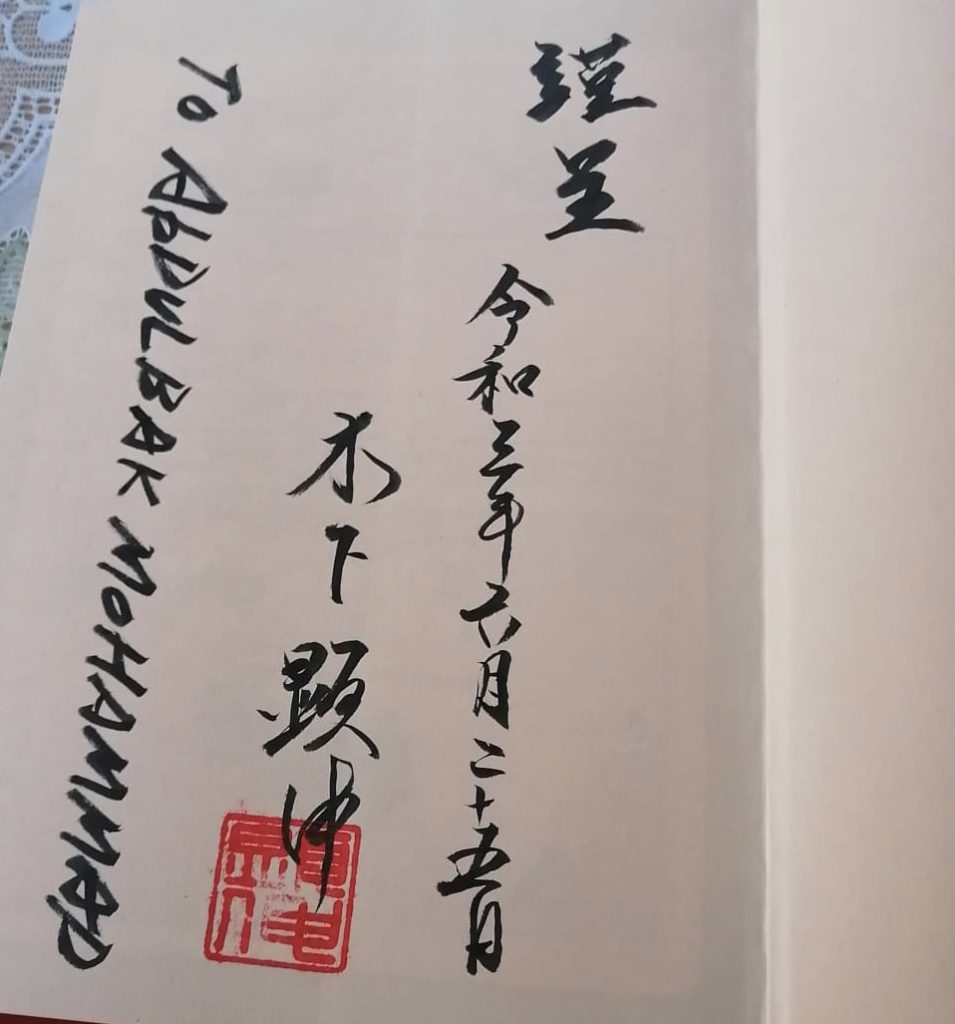 謹呈
令和三年六月二十五日
木下顕伸
To ABDULBAK MOHAMMAD